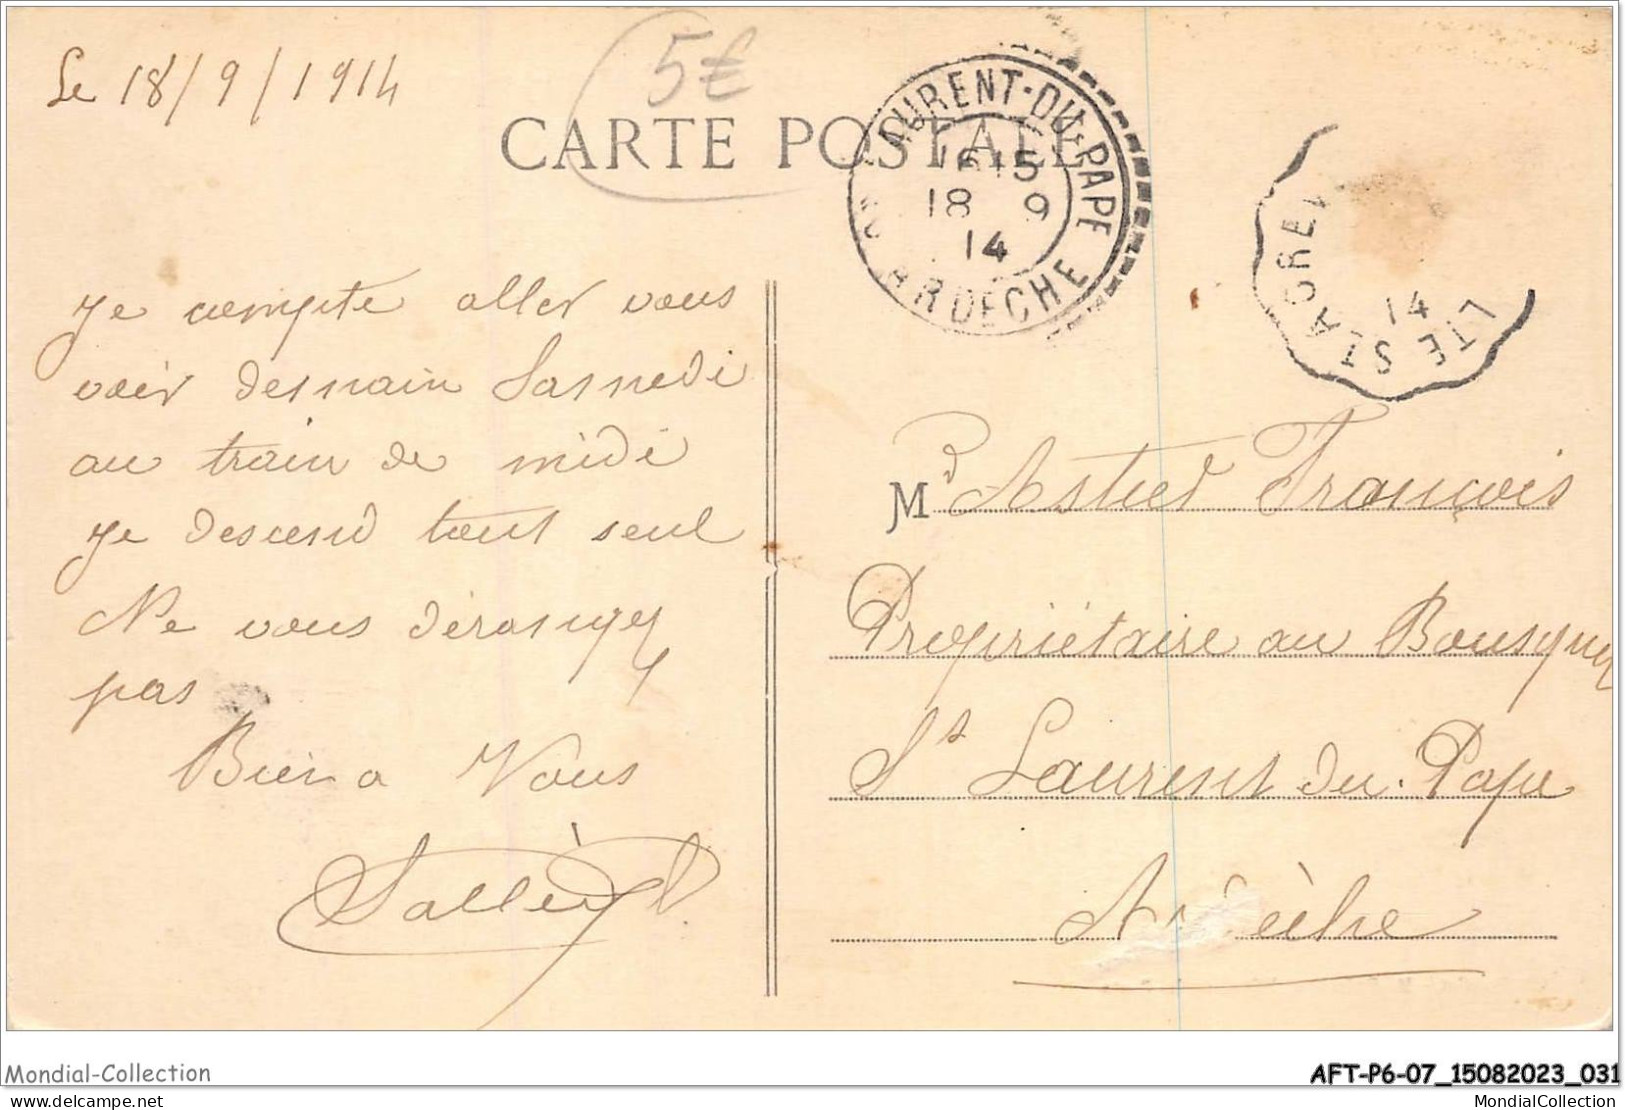 Le 18/9/1914
5€
CARTE POSTALE
St LAURENT-DU-PAPE
16 15
18 9
14
ARDECHE
LTE ST AGREV
14
Je compte aller vous
voir demain Samedi
au train de midi
je descend tout seul
Ne vous dérangez
pas
Bien a Vous
M Astier François
Propriétaire au Bousquet
St Laurent du Pape
Ardèche
Mondial-Collection
AFT-P6-07_15082023_031
delcampe.net
MondialCollection